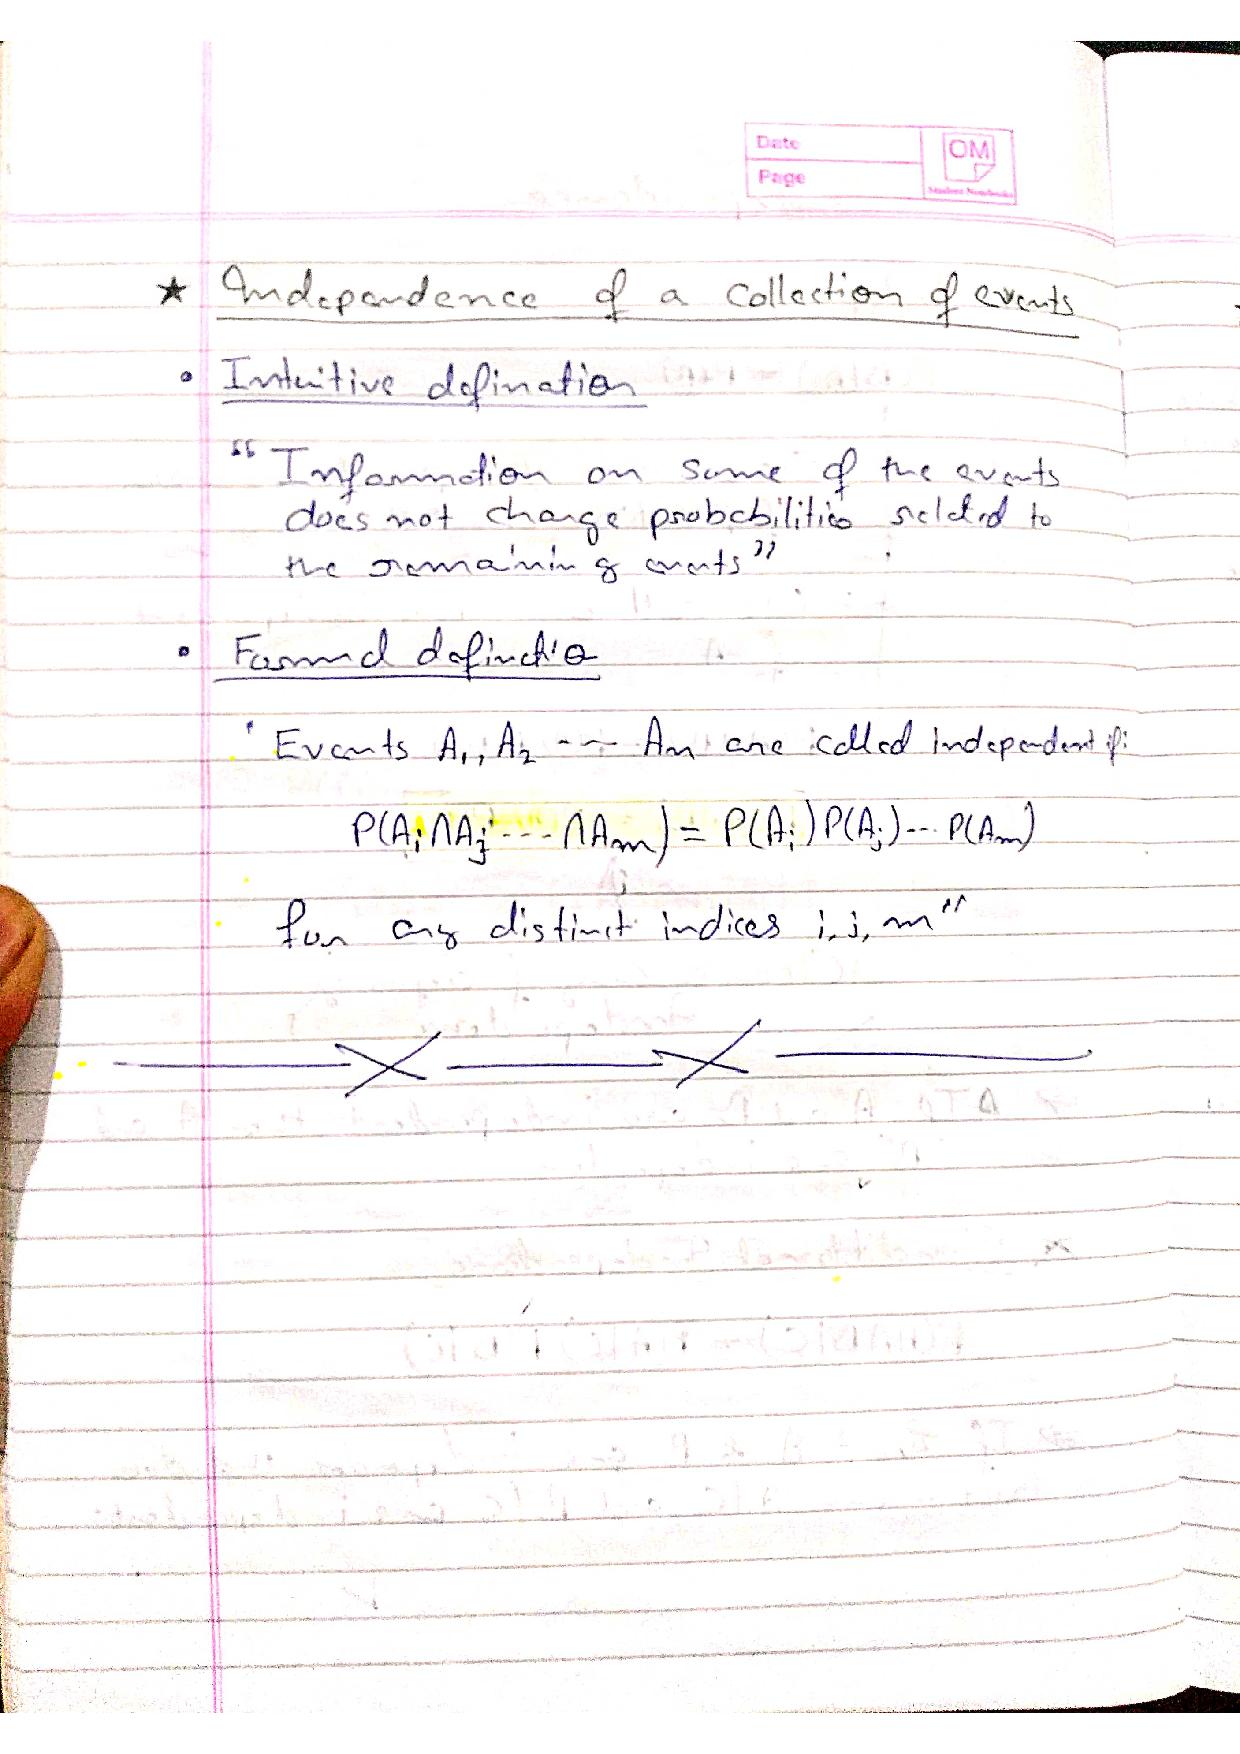 Date
Page
OM
Student Notebooks
★ Independence of a collection of events
• Intuitive defination
"Information on some of the events
does not change probabilities related to
the remaining events"
• Formal definatio
"Events A₁, A₂ ---- Aₙ are called independent if:
P(Aᵢ∩Aⱼ---- ∩Aₘ) = P(Aᵢ)P(Aⱼ)--- P(Aₘ)
for any distinct indices i, j, m"